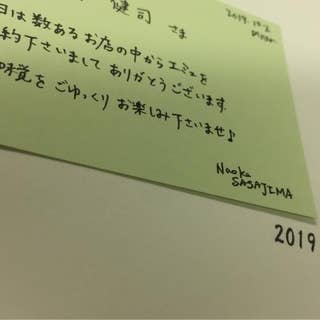 健司 さま
2019.10.2
日は数あるお店の中からエミュを
約下さいまして ありがとうございます
味覚を ごゆっくり お楽しみ下さいませ♪
Naoko
SASAJIMA
2019